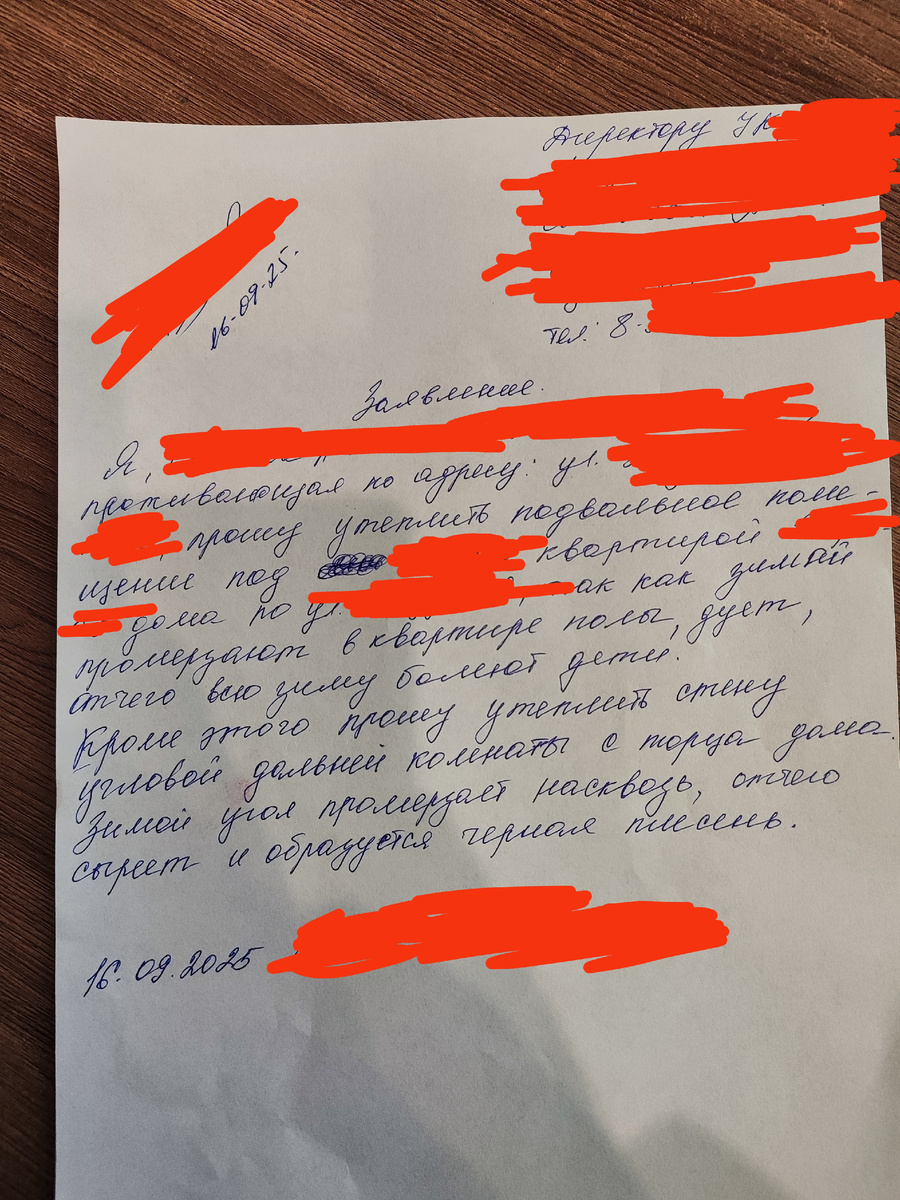 Директору УК
16.09.25.
тел: 8-
Заявление.
Я,
проживающая по адресу: ул.
, прошу утеплить подвальное поме-
щение под квартирой
дома по ул. , так как зимой
промерзают в квартире полы, дует,
отчего всю зиму болеют дети.
Кроме этого прошу утеплить стену
угловой дальней комнаты с торца дома.
Зимой угол промерзает насквозь, отчего
сыреет и образуется черная плесень.
16.09.2025